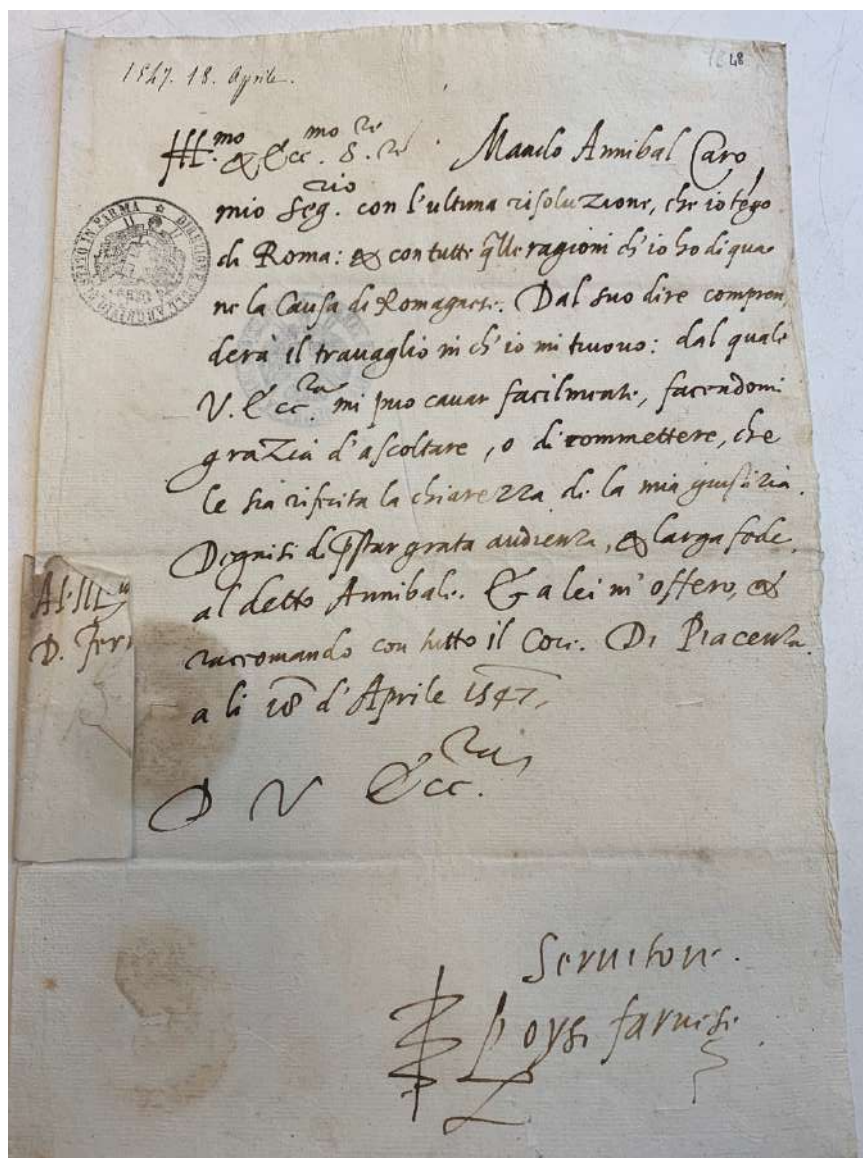 1547. 18. Aprile.
48
Ill.mo & Ecc.mo S.re Mando Annibal Caro
mio Seg.rio con l'ultima risoluzione, che io tēgo
di Roma: & con tutte q̄lle ragioni ch'io ho di qua
ne la Causa di Romagnese. Dal suo dire compren
derà il travaglio in ch'io mi truovo: dal quale
V. Ecc.za mi può cavar facilmente, facendomi
grazia d'ascoltare, o di commettere, che
le sia riferita la chiarezza de la mia giustizia.
Degnisi di p̄star grata audienza, & larga fede,
al detto Annibale. Et a lei m'offero, &
raccomando con tutto il Core. Di Piacenza.
a li 18 d'Aprile 1547.
D V Ecc.za
Servitore.
Loysi farnesi
Al Ill
D. Ferr
DIREZIONE DELL'ARCHIVIO DI STATO IN PARMA